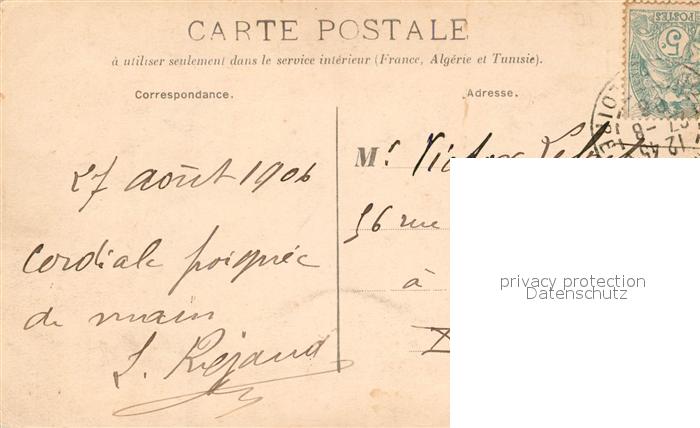 CARTE POSTALE
à utiliser seulement dans le service intérieur (France, Algérie et Tunisie).
Correspondance.
Adresse.
27 août 1906
Cordiale poignée
de main
Mr. Victor
56 rue
à
POSTES
5c
12 45
27 -8
privacy protection
Datenschutz